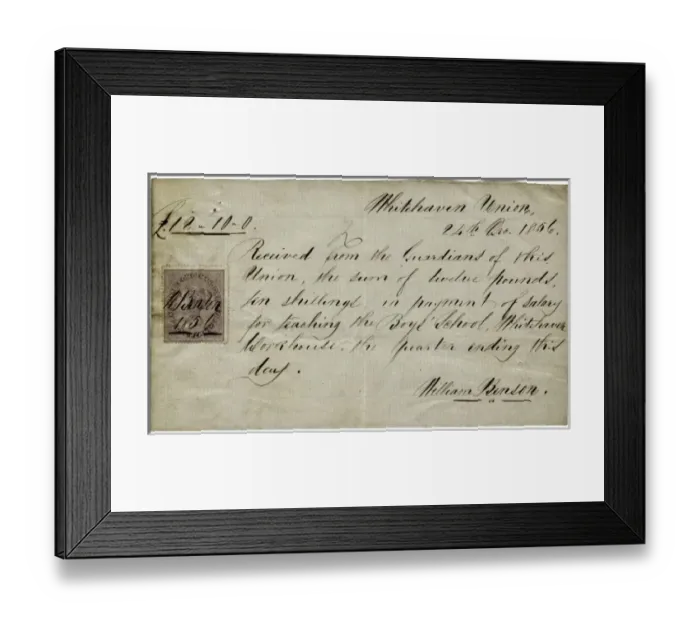 Whitehaven Union,
24th Dec. 1856.
£12-10-0.
Received from the Guardians of this
Union, the sum of twelve pounds,
ten shillings in payment of salary
for teaching the Boys' School, Whitehaven
Workhouse, the quarter ending this
day.
1856
William Benson.